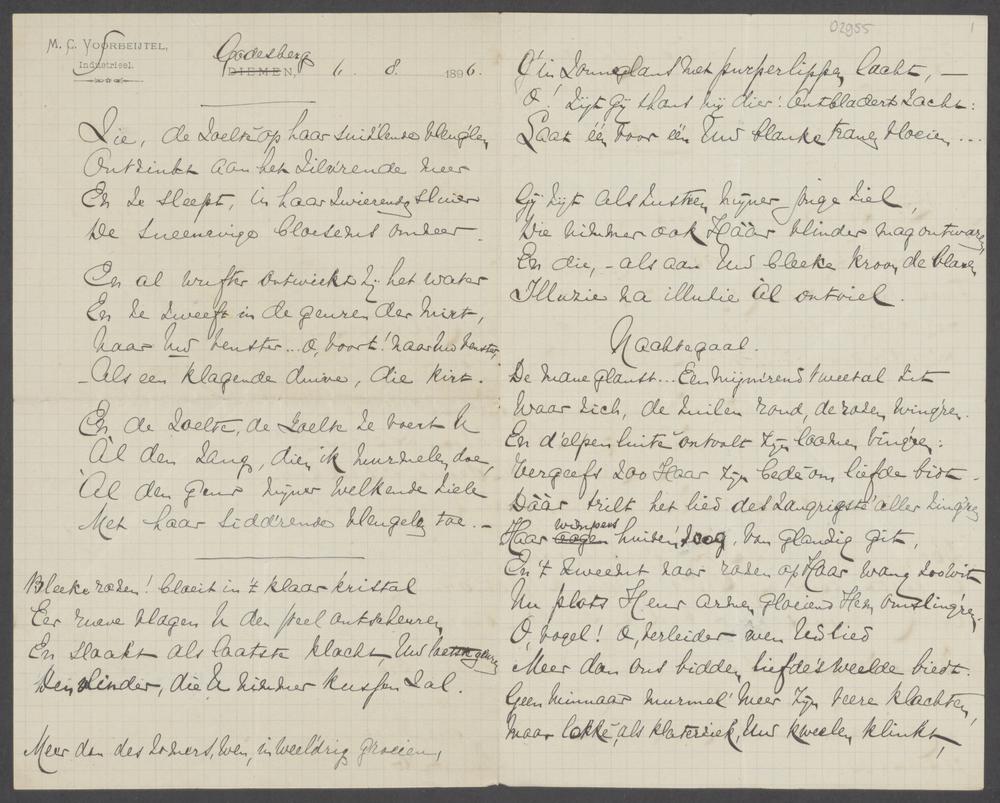 M. C. VOORBEIJTEL,
Industrieel.
Godesberg
DIEMEN, 6. 8. 1896.
Zie, de Zoelte op haar suizlende vleuglen
Ontzinkt aan het zilv'rende meer
En ze sleept, in haar zwierende sluier
De sneeuwige bloesems omneer.
En al wufter ontwiekt zij het water
En ze zweeft in de geuren der mirt,
Naar Uw venster... o, voort! naar Uw venster,
– Als een klagende duive, die kirt.
En de Zoelte, de Zoelte ze voert U
Al den zang, dien ik murmelen doe,
Al den geur mijner welkende ziele
Met haar sidd'rende vleugelen toe. –
Bleeke rozen! bloeit in 't klaar kristal
Eer ruwe vlagen U den steel ontscheuren
En slaakt als laatste klacht, Uw geuren
Den vlinder, die U nimmer kussen zal.
Meer dan des zomers, wen, in weeldrig groeien,
02955
1
G' in zonneglans met purperlippen lacht, —
O! zijt gij thans mij dier: ontbladert zacht:
Laat één voor één Uw blanke tranen vloeien...
Gij zijt als zustren mijner jonge ziel,
Die nimmer ook Háár vlinder mag ontwaren,
En die, – als aan Uw bleeke kroon, de blaren,
Illuzie na illuzie àl ontviel.
Nachtegaal.
De mane glanst... Een mijm'rend tweetal zit
Waar zich, de zuilen rond, de rozen wing'ren.
En d'elpen luite ontvalt zijn loome ving'ren:
Vergeefs zoo Haar zijn bede om liefde bidt.
Dáár trilt het lied des zangrigste aller zing'ren
Haar oogen wimpers huiven 't oog, van glanzig git,
En 't zweemt naar rozen op Haar wang zoo wit
Nu plots Heur armen gloeiend Hem omsling'ren.
O, vogel! o, verleider wen Uw lied
Meer dan ons bidden liefde's weelde biedt.
Geen minnaar murmel' meer zijn teere klachten,
Maar lokke, als klaterziek, Uw kweelen klinkt,